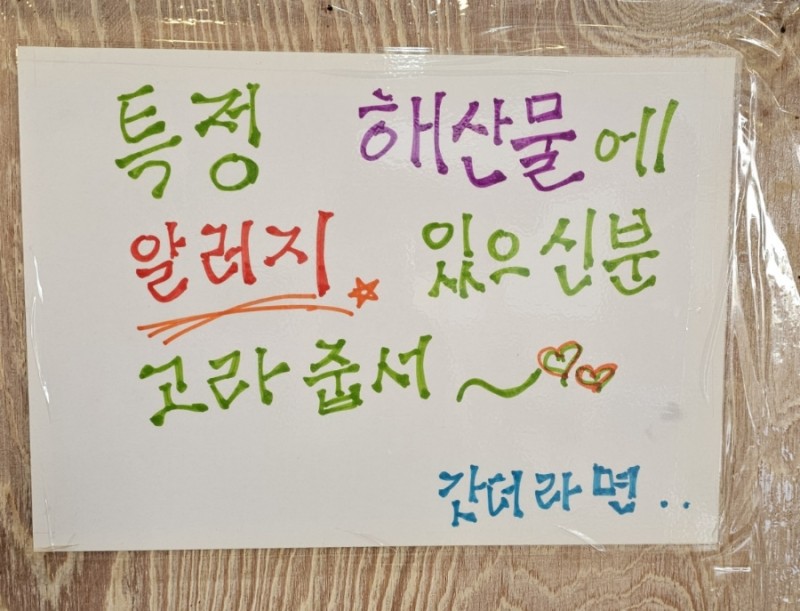 특정 해산물에
알러지 있으신분
고라줍서~
갔더라면..